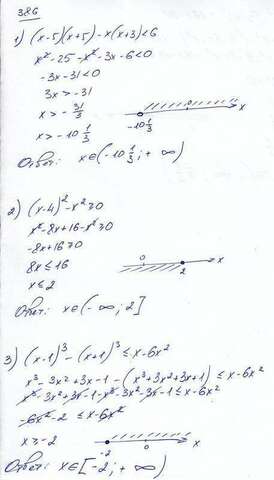 386
1) (x-5)(x+5)-x(x+3)<6
x²-25-x²-3x-6<0
-3x-31<0
3x>-31
x>-31/3
x>-10 1/3
-10 1/3 0 x
Ответ: x∈(-10 1/3; +∞)
2) (x-4)²-x²≥0
x²-8x+16-x²≥0
-8x+16≥0
8x≤16
x≤2
0 2 x
Ответ: x∈(-∞; 2]
3) (x-1)³-(x+1)³≤x-6x²
x³-3x²+3x-1-(x³+3x²+3x+1)≤x-6x²
x³-3x²+3x-1-x³-3x²-3x-1≤x-6x²
-6x²-2≤x-6x²
x≥-2
-2 0 x
Ответ: x∈[-2; +∞)